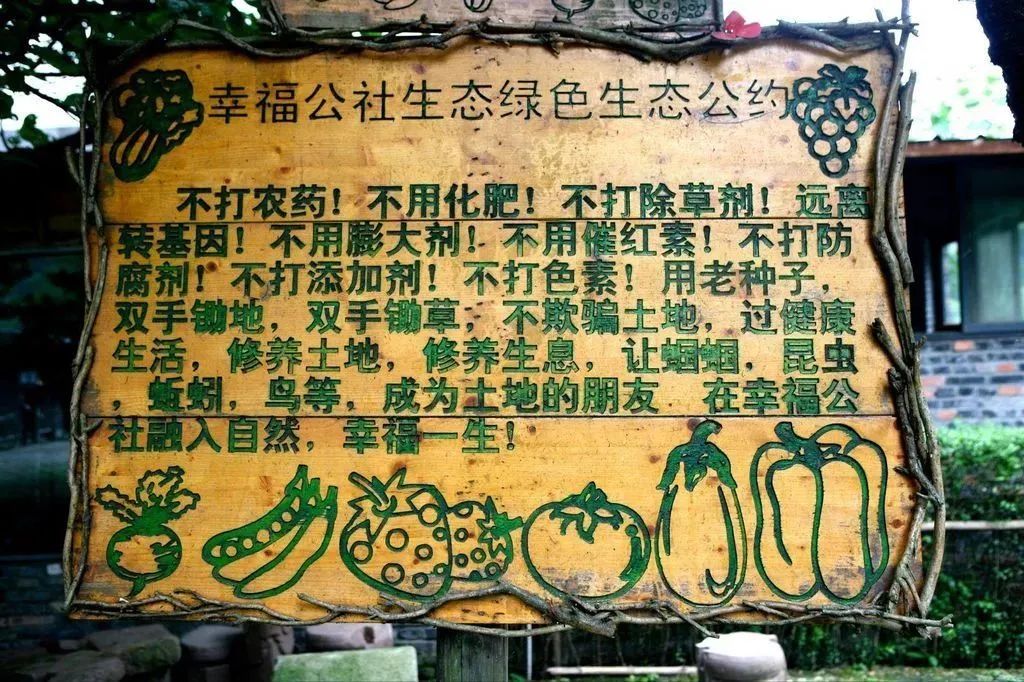 幸福公社生态绿色生态公约
不打农药！不用化肥！不打除草剂！远离
转基因！不用膨大剂！不用催红素！不打防
腐剂！不打添加剂！不打色素！用老种子，
双手锄地，双手锄草，不欺骗土地，过健康
生活，修养土地，修养生息，让蝈蝈，昆虫
，蚯蚓，鸟等，成为土地的朋友 在幸福公
社融入自然，幸福一生！